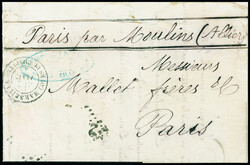 Paris par Moulins (Allier)
Messieurs
Mallet frères & C
Paris